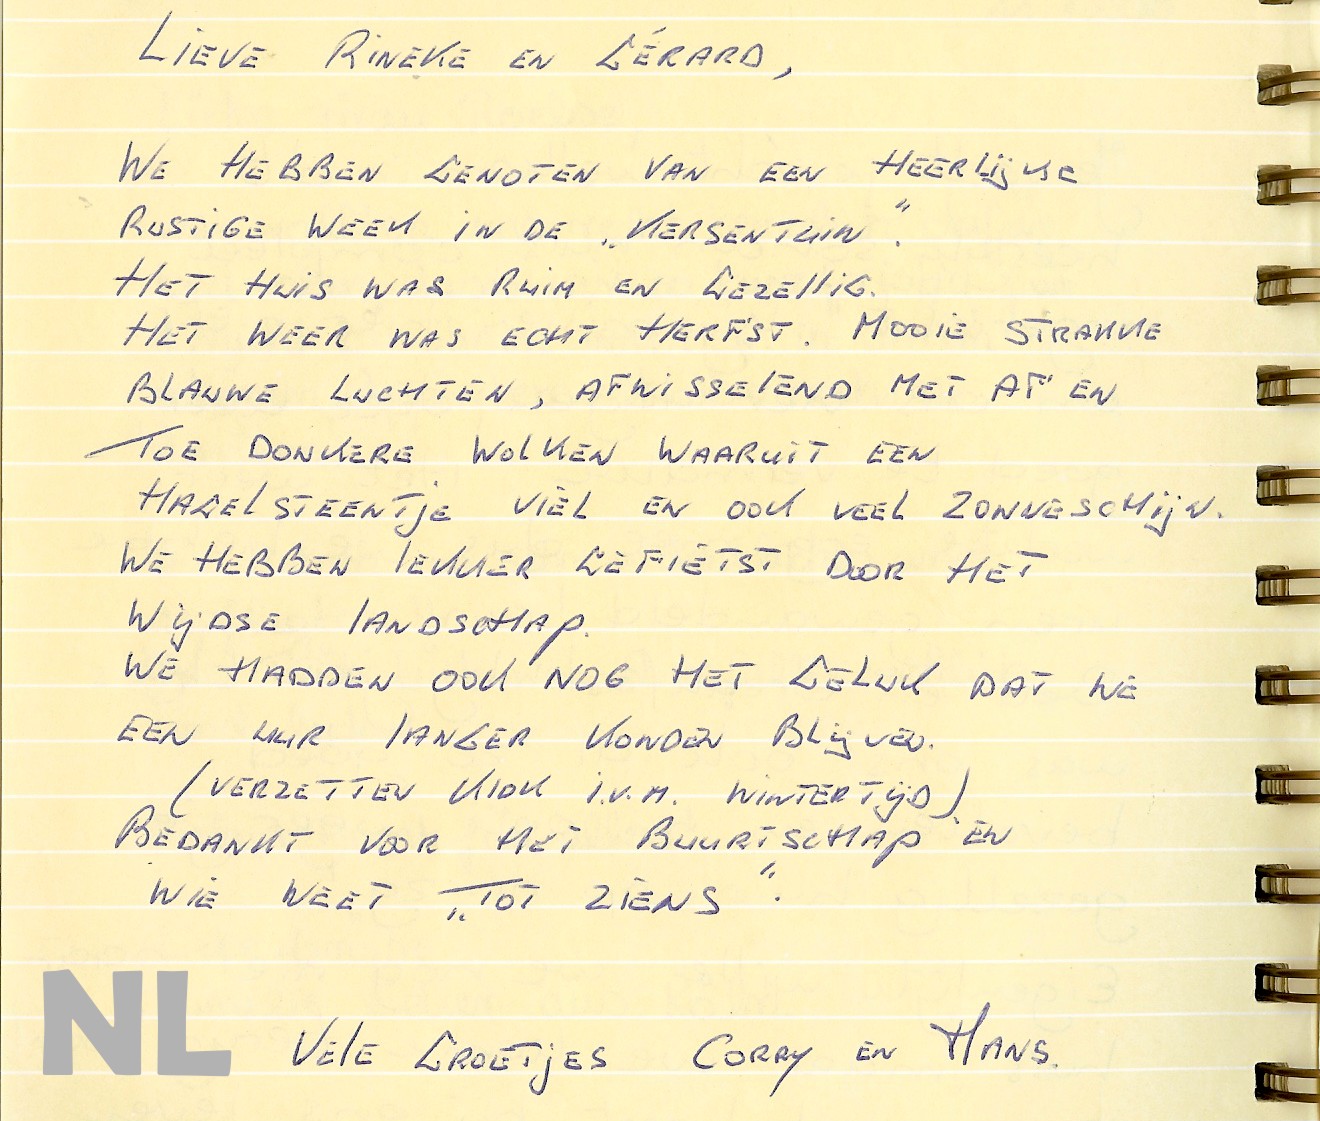 LIEVE RINEKE EN GÉRARD,
WE HEBBEN GENOTEN VAN EEN HEERLIJKE
RUSTIGE WEEK IN DE „KERSENTUIN”.
HET HUIS WAS RUIM EN GEZELLIG.
HET WEER WAS ECHT HERFST. MOOIE STRAKKE
BLAUWE LUCHTEN, AFWISSELEND MET AF EN
TOE DONKERE WOLKEN WAARUIT EEN
HAGELSTEENTJE VIEL EN OOK VEEL ZONNESCHIJN.
WE HEBBEN LEKKER GEFIETST DOOR HET
WIJDSE LANDSCHAP.
WE HADDEN OOK NOG HET GELUK DAT WE
EEN UUR LANGER KONDEN BLIJVEN.
(VERZETTEN KLOK I.V.M. WINTERTIJD)
BEDANKT VOOR HET BUURTSCHAP EN
WIE WEET „TOT ZIENS”.
VELE GROETJES CORRY EN HANS.
NL